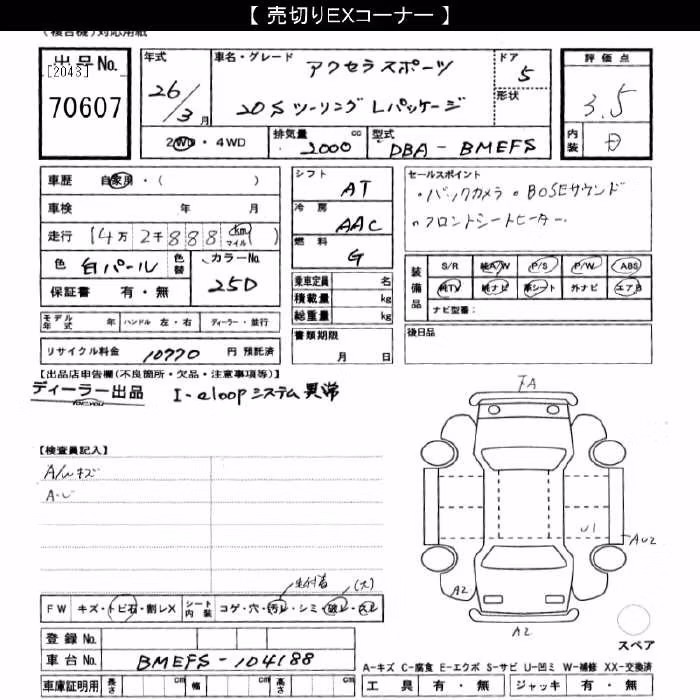 【 売切りEXコーナー 】
(複合機)対応用紙
出品No.
[2043]
70607
年式
26/3月
車名・グレード
アクセラスポーツ
20S ツーリング Lパッケージ
ドア
5
形状
評価点
3.5
内装
2WD・4WD
排気量
2000 cc
型式
DBA - BMEFS
車歴 自家用・( )
車検 年 月
走行 14万2千888 km マイル ( )
色 白パール 色替 カラーNo. 25D
保証書 有・無
シフト
AT
冷房
AAC
燃料
G
乗車定員 名
積載量 kg
総重量 kg
書類期限
月 日
セールスポイント
・バックカメラ ・BOSEサウンド
・フロントシートヒーター
装備品
S/R 純A/W P/S P/W ABS
純TV 純ナビ 革シート 外ナビ エアB
ナビ型番:
後日品
モデル年式 年 ハンドル 左・右 ディーラー・並行
リサイクル料金 10770 円 預託済
【出品店申告欄(不良箇所・欠品・注意事項等)】
ディーラー出品 I-eloopシステム異常
【検査員記入】
A/Wキズ
FA
U1
AU2
A2
A2
スペア
FW キズ・トビ石・割レX シート内装 コゲ・穴・汚レ・シミ・破レ・スレ
(大)
登録No.
車台No. BMEFS-104188
車庫証明用 長さ cm 幅 cm 高さ cm
A-キズ C-腐食 E-エクボ S-サビ U-凹ミ W-補修 XX-交換済
工具 有・無 ジャッキ 有・無